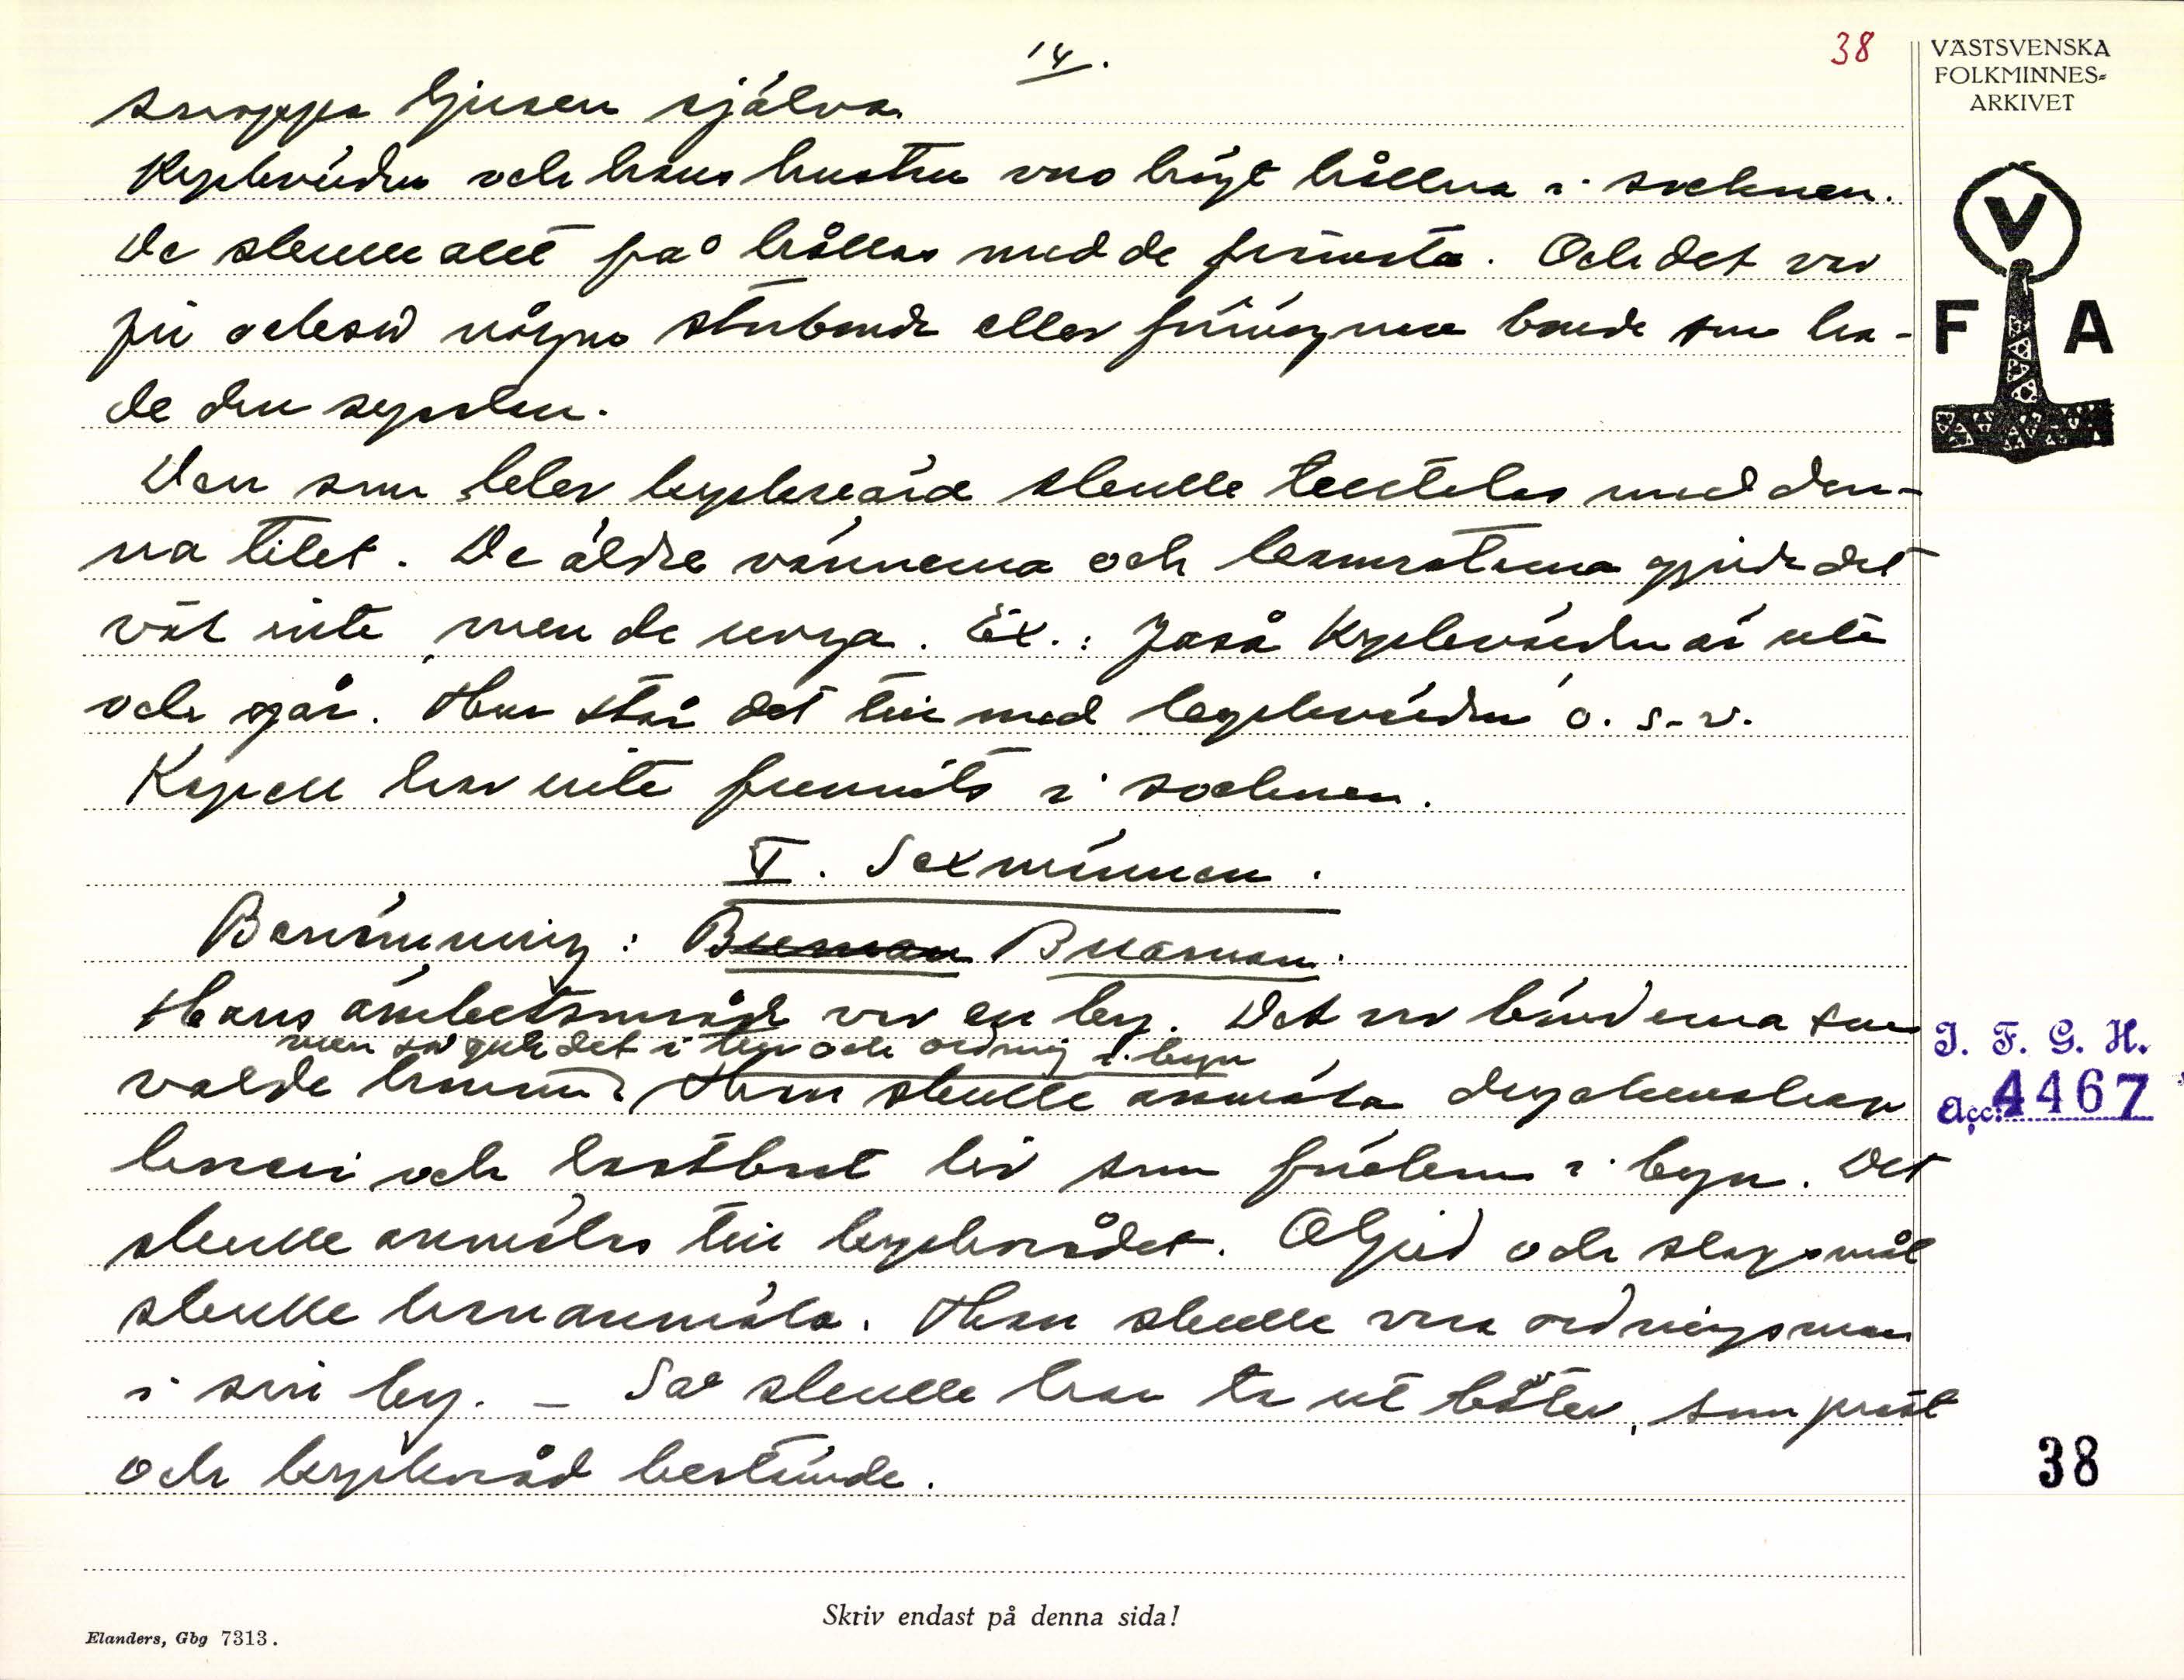 14.
38
VÄSTSVENSKA
FOLKMINNES-
ARKIVET
snoppa ljusen själva.
Kyrkvärden och hans hustru var högt hållna i socknen.
De skulle allt på hållas med de främsta. Och det var
ju också några storbönde eller förmögna bonde som ha-
de den sysslan.
Den som blev kyrkvärd skulle tituleras med den-
na titel. De äldre vännerna och kamraterna gjorde det
väl inte, men de unga. Ex.: Jaså Kyrkvärden är ute
och går. Hur står det till med kyrkvärden o. s. v.
Kapell har inte funnits i socknen.
V. Sexmännen.
Benämning: Buaman.
Hans ämbetsområde var en by. Det var bönderna som
men såg till det i hus och ordning i byn
valde honom. Han skulle anmäla dryckenskap
 och lastbart liv som förekom i byn. Det
skulle anmälas till kyrkorådet. Oljud och slagsmål
skulle han anmäla. Han skulle vara ordningsman
i sin by. – Så skulle han ta ut böter, som präst
och kyrkoråd bestämde.
V
F A
I. F. G. H.
Acc. 4467
38
Skriv endast på denna sida!
Elanders, Gbg 7313.